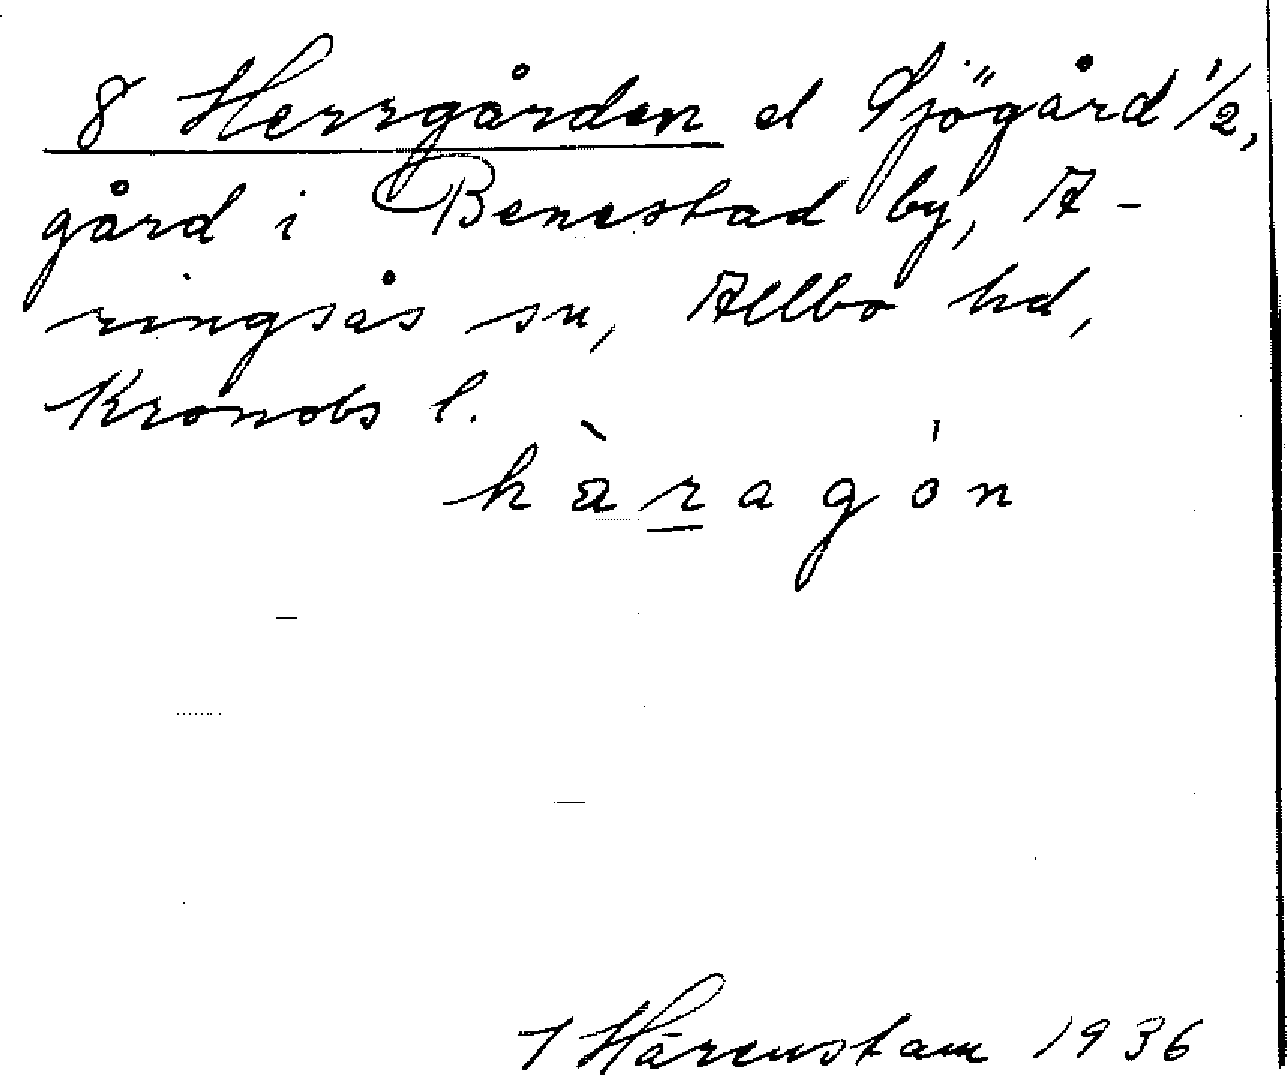 8 Herrgården el Sjögård 1/2,
gård i Benestad by, A-
ringsås sn, Allbo hd,
Kronobs l.
hàragón
T Härenstam 1936